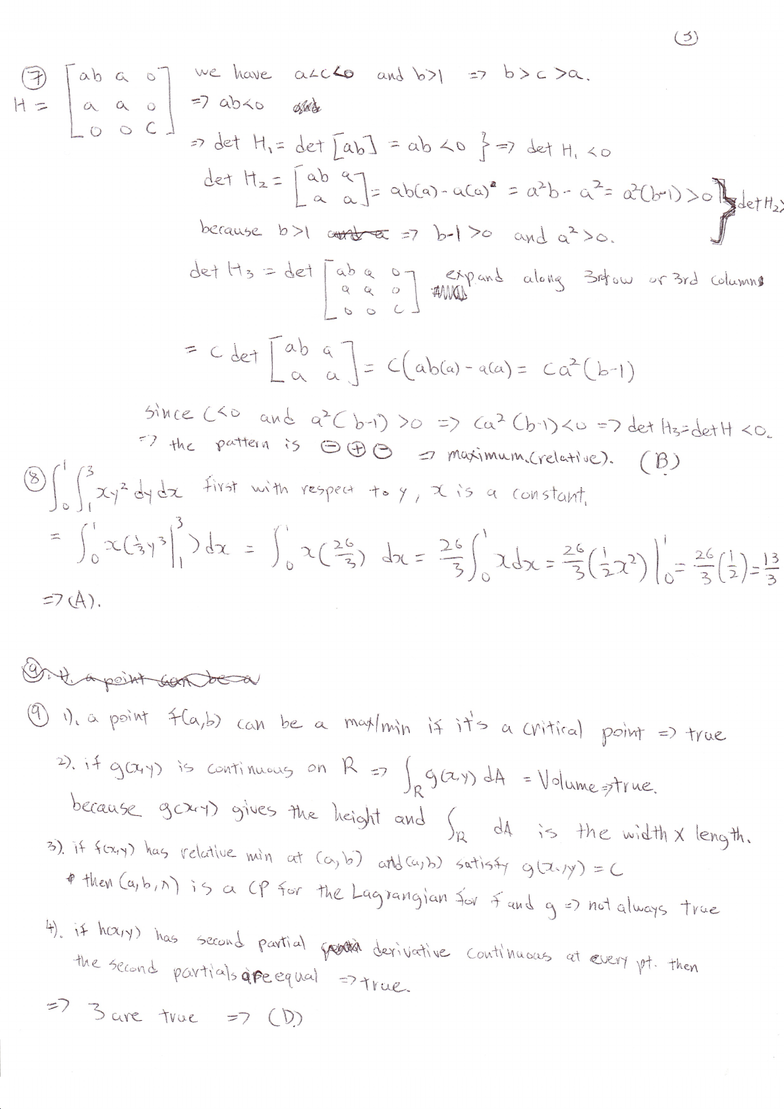 (3)
⑦ H = [ab a 0; a a 0; 0 0 c] we have a<c<0 and b>1 => b>c>a.
=> ab<0
=> det H₁ = det [ab] = ab <0 } => det H₁ <0
det H₂ = [ab a; a a] = ab(a) - a(a) = a²b - a² = a²(b-1) >0 } det H₂>
because b>1 => b-1>0 and a²>0.
det H₃ = det [ab a 0; a a 0; 0 0 c] expand along 3rd row or 3rd columns
= c det [ab a; a a] = c(ab(a) - a(a) = ca²(b-1)
since c<0 and a²(b-1) >0 => ca²(b-1)<0 => det H₃ = det H <0.
=> the pattern is ⊖ ⊕ ⊖ => maximum (relative). (B)
⑧ ∫₀¹ ∫₁³ xy² dy dx first with respect to y, x is a constant.
= ∫₀¹ x(⅓y³|₁³) dx = ∫₀¹ x(26/3) dx = 26/3 ∫₀¹ x dx = 26/3 (½x²)|₀¹ = 26/3 (½) = 13/3
=> (A).
⑨ 1). a point f(a,b) can be a max/min if it's a critical point => true
2). if g(x,y) is continuous on R => ∫_R g(x,y) dA = Volume => true.
because g(x,y) gives the height and ∫_R dA is the width x length.
3). if f(x,y) has relative min at (a,b) and (a,b) satisfy g(x,y) = c
then (a,b,λ) is a CP for the Lagrangian for f and g => not always true
4). if h(x,y) has second partial derivative continuous at every pt. then
the second partials are equal => true.
=> 3 are true => (D)